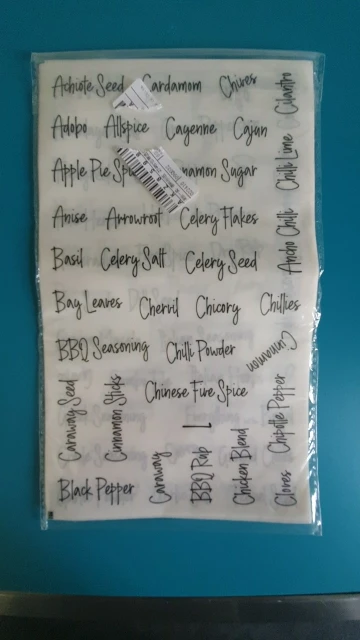 Achiote Seed Cardamom Chives
Cilantro
Adobo Allspice Cayenne Cajun
Chilli Lime
Apple Pie Cinnamon Sugar
Anise Arrowroot Celery Flakes
Ancho Chilli
Basil Celery Salt Celery Seed
Bay Leaves Chervil Chicory Chillies
BBQ Seasoning Chilli Powder
Cinnamon
Caraway Seed
Cinnamon Sticks
Chinese Five Spice
Chipotle Pepper
Black Pepper
Caraway
BBQ Rub
Chicken Blend
Cloves